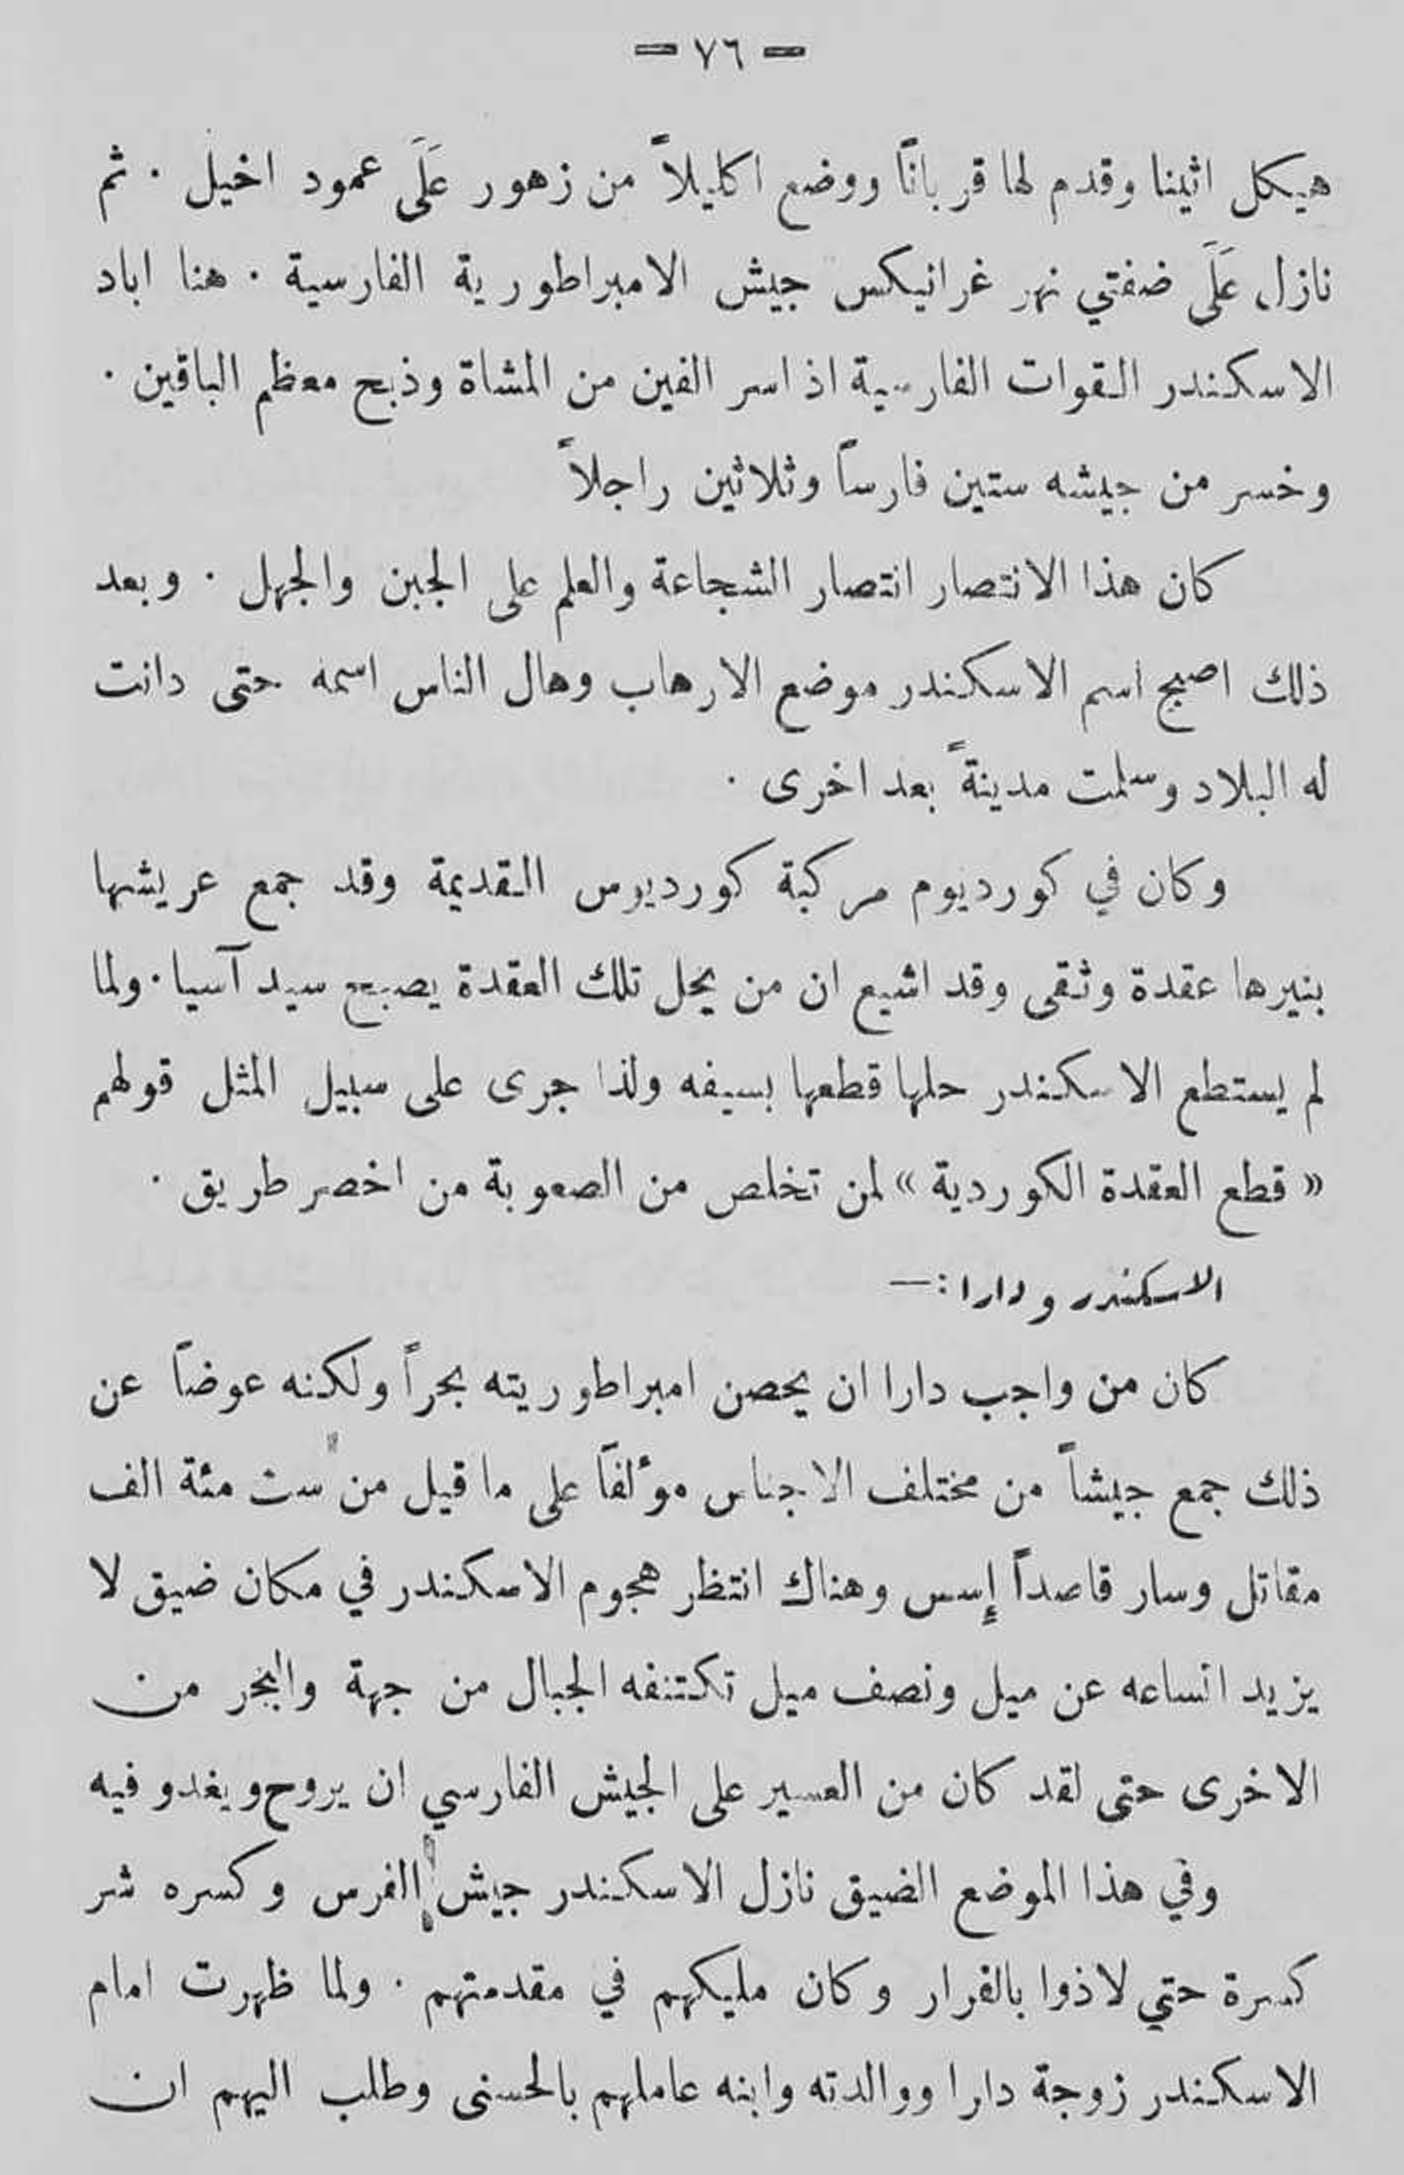 — ٧٦ —
هيكل اثينا وقدم لها قرباناً ووضع اكليلاً من زهور عَلَى عمود اخيل . ثم
نازل عَلَى ضفتي نهر غرانيكس جيش الامبراطورية الفارسية . هنا اباد
الاسكندر القوات الفارسية اذ اسر الفين من المشاة وذبح معظم الباقين .
وخسر من جيشه ستين فارساً وثلاثين راجلاً
كان هذا الانتصار انتصار الشجاعة والعلم على الجبن والجهل . وبعد
ذلك اصبح اسم الاسكندر موضع الارهاب وهال الناس اسمه حتى دانت
له البلاد وسلمت مدينةً بعد اخرى .
وكان في كورديوم مركبة كورديوس القديمة وقد جمع عريشها
بنيرها عقدة وثقى وقد اشيع ان من يحل تلك العقدة يصبح سيد آسيا . ولما
لم يستطع الاسكندر حلها قطعها بسيفه ولذا جرى على سبيل المثل قولهم
« قطع العقدة الكوردية » لمن تخلص من الصعوبة من اخصر طريق .
الاسكندر ودارا : —
كان من واجب دارا ان يحصن امبراطوريته بحراً ولكنه عوضاً عن
ذلك جمع جيشاً من مختلف الاجناس موٴلفاً على ما قيل من ست مئة الف
مقاتل وسار قاصداً إِسس وهناك انتظر هجوم الاسكندر في مكان ضيق لا
يزيد اتساعه عن ميل ونصف ميل تكتنفه الجبال من جهة والبحر من
الاخرى حتى لقد كان من العسير على الجيش الفارسي ان يروح ويغدو فيه
وفي هذا الموضع الضيق نازل الاسكندر جيش الفرس وكسره شر
كسرة حتى لاذوا بالفرار وكان مليكهم في مقدمتهم . ولما ظهرت امام
الاسكندر زوجة دارا ووالدته وابنه عاملهم بالحسنى وطلب اليهم ان